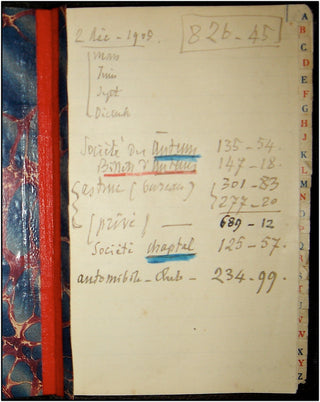 2 Déc - 1908.
826-45
Mars
Juin
Sept
Décemb
Société des Auteurs 135-54.
147-18.
Gastine (bureau) 301-83
277-20
(privé) — 689-12
Société Chaptal 125-57.
automobile-Club - 234-99.
A
B
C
D
E
F
G
H
J
K
L
M
N
O
P
Q
R
S
T
U
V
W
X
Y
Z